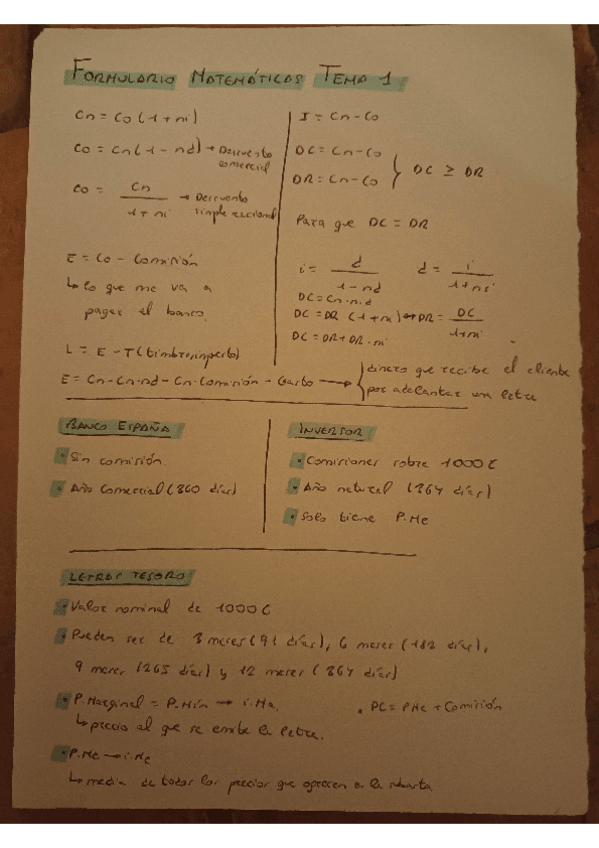 FORMULARIO MATEMÁTICAS TEMA 1
Cn = Co (1 + ni)
Co = Cn (1 - nd) → Descuento comercial
Co = Cn / 1 + ni → Descuento simple racional
E = Co - Comisión
↳ lo que me va a
pagar el banco.
L = E - T (timbre, impuesto)
I = Cn - Co
DC = Cn - Co
DR = Cn - Co } DC ≥ DR
Para que DC = DR
i = d / 1 - nd d = i / 1 + ni
DC = Cn · n · d
DC = DR (1 + ni) ↔ DR = DC / 1 + ni
DC = DR + DR · ni
E = Cn - Cn · nd - Cn · Comisión - Gasto → { dinero que recibe el cliente
por adelantar una letra
BANCO ESPAÑA
• Sin comisión.
• Año Comercial (360 días)
INVERSOR
• Comisiones sobre 1000 €
• Año natural (364 días)
• Solo tiene P.Me
LETRAS TESORO
• Valor nominal de 1000 €
• Pueden ser de 3 meses (91 días), 6 meses (182 días),
9 meses (265 días) y 12 meses (364 días)
• P.Marginal = P.Mín → i.Ma.
↳ precio al que se emite la letra.
• PC = PMe + Comisión
• P.Me → i.Me
↳ media de todos los precios que ofrecen a la subasta